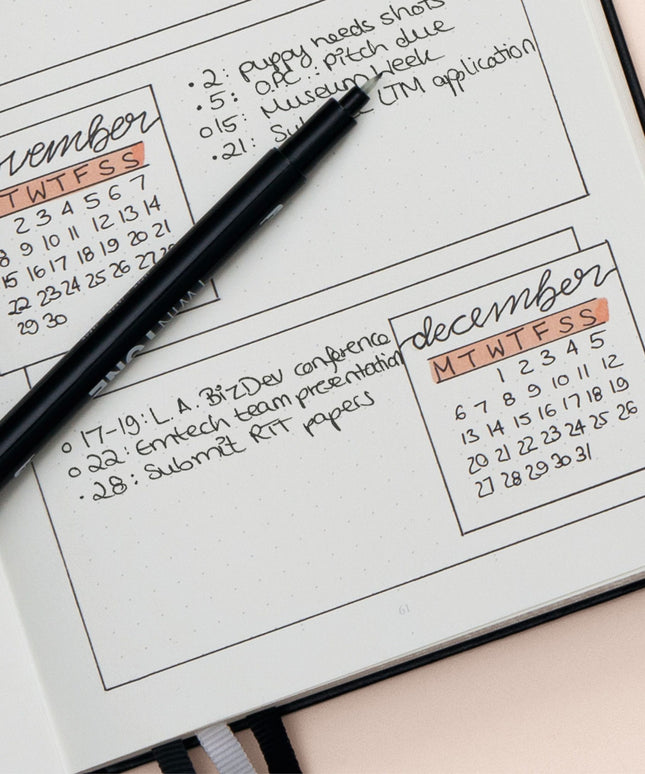 • 2: puppy needs shots
• 5: OPC: pitch due
o 15: Museum Week
• 21: LTM application
vember
T W T F S S
2 3 4 5 6 7
8 9 10 11 12 13 14
15 16 17 18 19 20 21
22 23 24 25 26 27
29 30
TWINTONE
o 17-19: L.A. BizDev conference
o 22: Emtech team presentation
• 28: Submit RTT papers
december
M T W T F S S
1 2 3 4 5
6 7 8 9 10 11 12
13 14 15 16 17 18 19
20 21 22 23 24 25 26
27 28 29 30 31
61